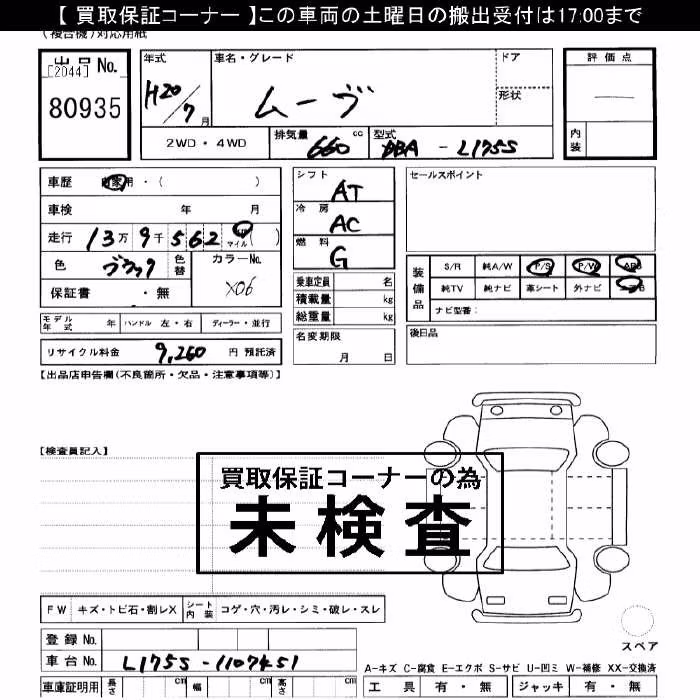 【 買取保証コーナー 】この車両の土曜日の搬出受付は17:00まで
(複合機)対応用紙
出品 No.
[2044]
80935
年式
H20/7月
車名・グレード
ムーヴ
ドア
形状
評価点
—
内装
2WD・4WD
排気量 660 cc
型式 DBA - L175S
車歴 自家用・( )
車検 年 月
走行 13万9千562 マイル( )
色 ブラック 色替
カラーNo.
X06
保証書 ・無
シフト AT
冷房 AC
燃料 G
乗車定員 名
積載量 kg
総重量 kg
セールスポイント
装備品
S/R 純A/W P/S P/W ABS
純TV 純ナビ 革シート 外ナビ
ナビ型番:
モデル年式 年 ハンドル 左・右 ディーラー・並行
リサイクル料金 9,260 円 預託済
名変期限
月 日
後日品
【出品店申告欄(不良箇所・欠品・注意事項等)】
【検査員記入】
買取保証コーナーの為
未検査
FW キズ・トビ石・割レX シート内装 コゲ・穴・汚レ・シミ・破レ・スレ
スペア
登録 No.
車台 No. L175S-1107451
A-キズ C-腐食 E-エクボ S-サビ U-凹ミ W-補修 XX-交換済
車庫証明用 長さ cm 幅 cm 高さ cm
工具 有・無 ジャッキ 有・無